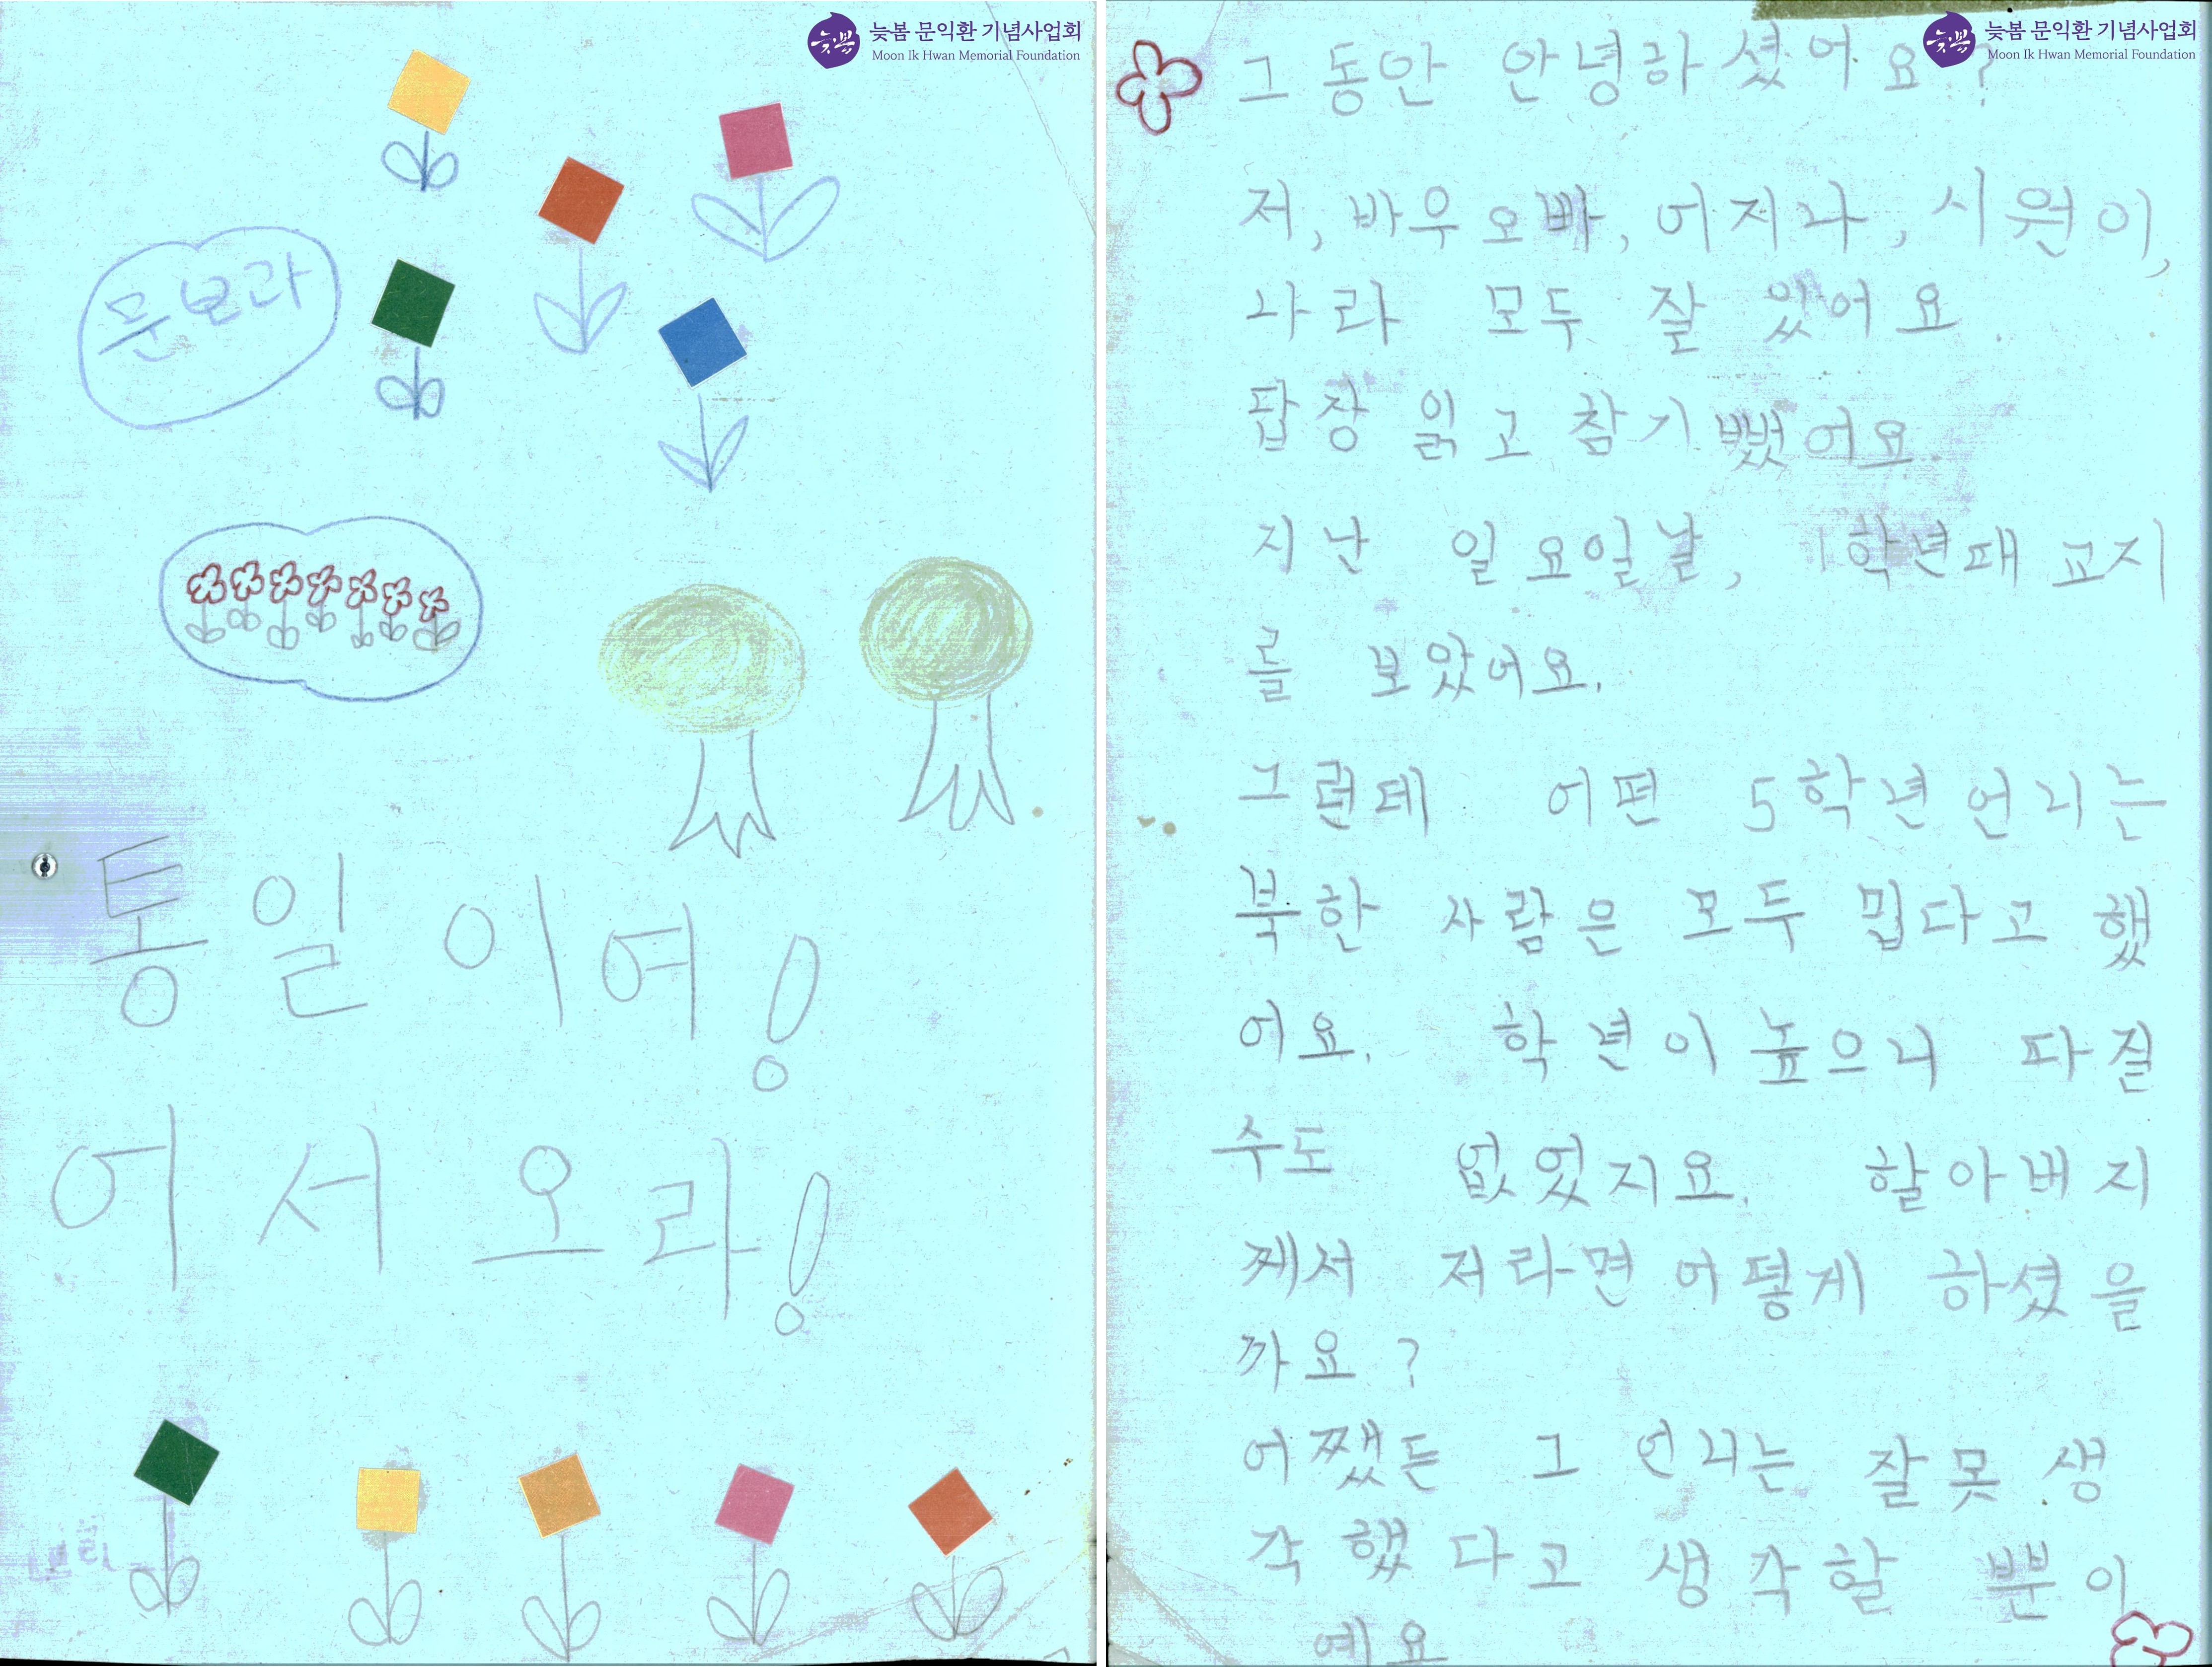 늦봄 문익환 기념사업회
Moon Ik Hwan Memorial Foundation
문보라
통일이여!
어서오라!
늦봄 문익환 기념사업회
Moon Ik Hwan Memorial Foundation
그동안 안녕하셨어요?
저, 바우오빠, 어지나, 시원이,
나라 모두 잘 있어요.
답장 읽고 참 기뻤어요.
지난 일요일날, 1학년때 교지
를 보았어요.
그런데 어떤 5학년 언니는
북한 사람은 모두 밉다고 했
어요. 학년이 높으니 따질
수도 없었지요. 할아버지
께서 저라면 어떻게 하셨을
까요?
어쨌든 그 언니는 잘못 생
각했다고 생각할 뿐이
예요